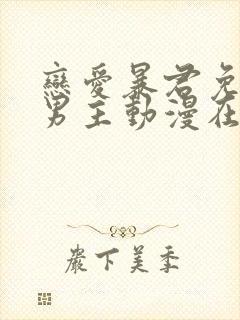 戀愛暴君免
男主動漫在
嚴下美季